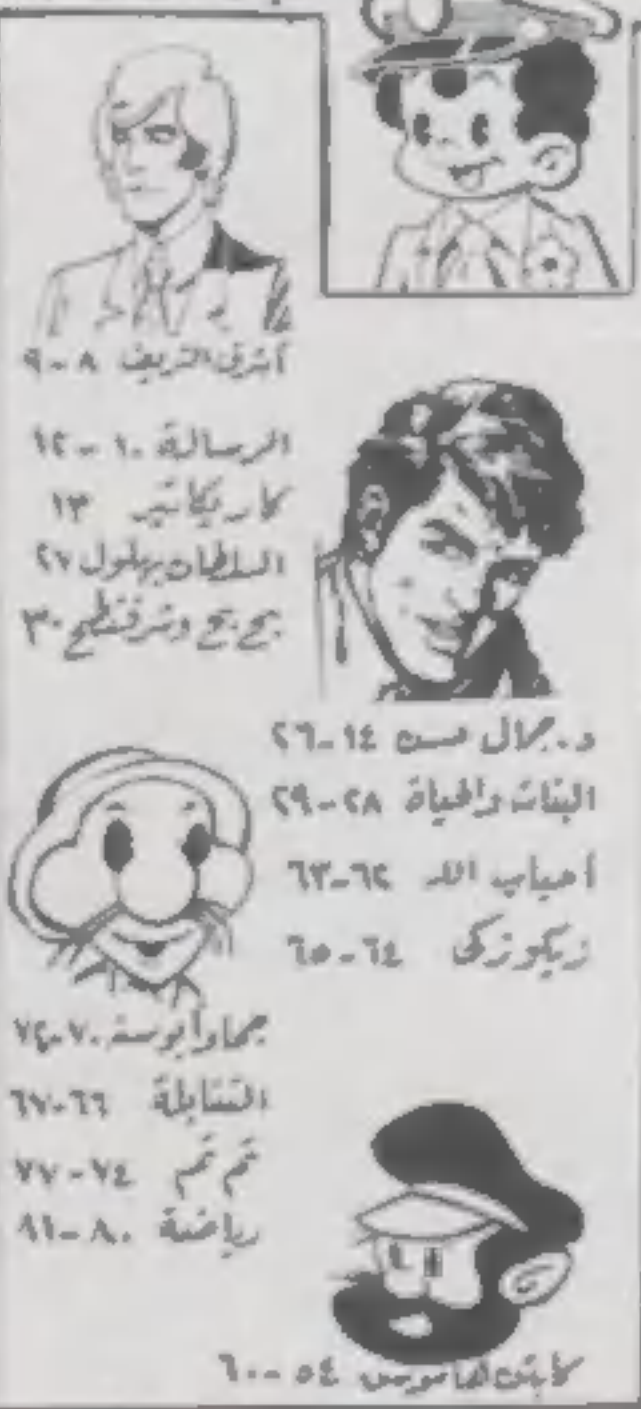 أشرف الشريف ٨-٩
الرسالة ١٠-١٢
كاريكاتير ١٣
السلطان بهلول ٢٧
بح بح وشرفنطح ٣٠
د. جمال حسن ١٤-٢٦
البنات والحياة ٢٨-٢٩
أحباب الله ٦٢-٦٣
زيكو زكى ٦٤-٦٥
جحا وأبو سنة ٧٠-٧٢
التنابلة ٦٦-٦٧
تم تم ٧٤-٧٧
رياضة ٨٠-٨١
كابتن ٥٤-٦٠